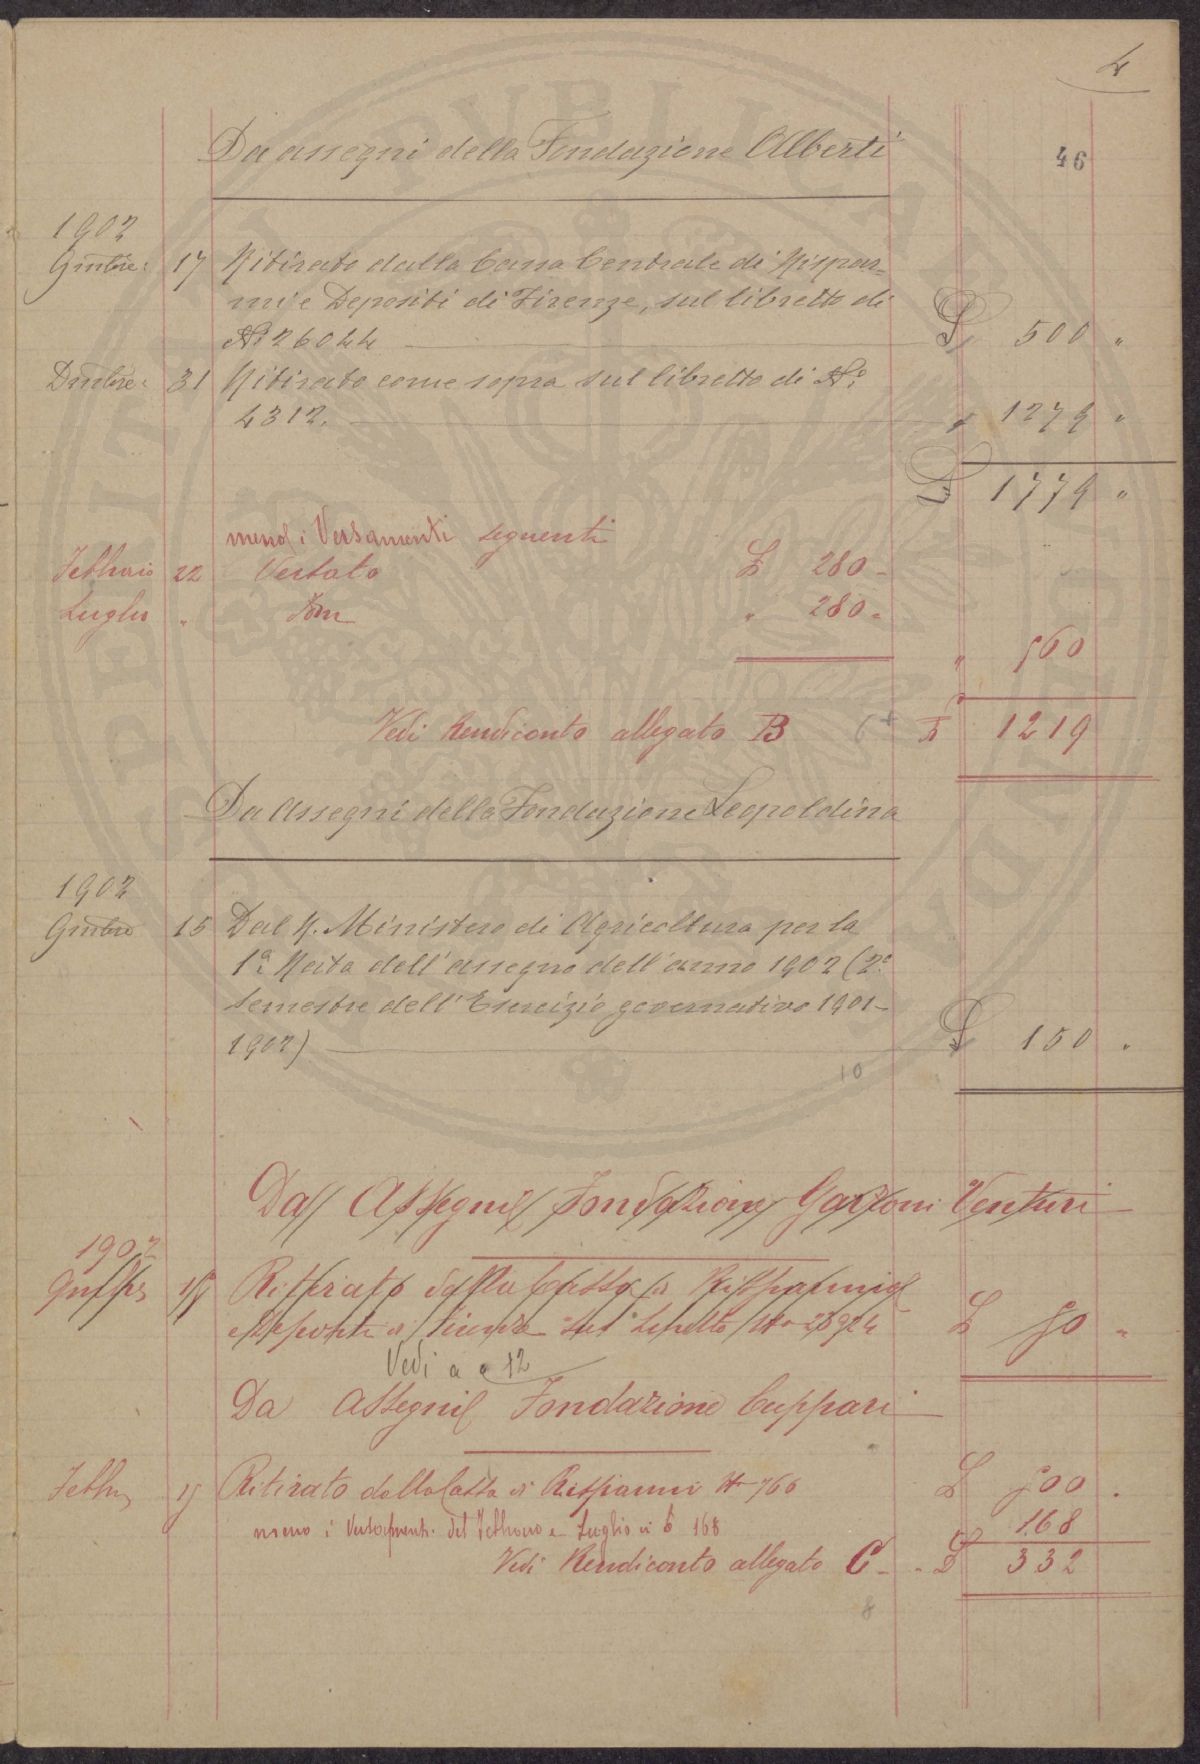 4
46
Da assegni della Fondazione Alberti
1902
Gmbre: 17 Ritirato dalla Cassa Centrale di Rispar=
mi e Depositi di Firenze, sul libretto di
No 26044 £ 500 "
Dmbre: 31 Ritirato come sopra sul libretto di No.
4312. " 1279 "
£ 1779 "
meno i Versamenti seguenti
Febbraio 22 Versato £ 280 -
Luglio " " 280 "
" 560
Vedi Rendiconto allegato B £ 1219
Da Assegni della Fondazione Leopoldina
1902
15 Dal R. Ministero di Agricoltura per la
1a. Rata dell'assegno dell'anno 1902 (2o.
Semestre dell'Esercizio governativo 1901-
1902) £ 150 "
10
Da Assegni Fondazione Garzoni Venturi
1902
Ritirato dalla Cassa di Risparmi
e Depositi di Firenze sul Libretto No 28924 £ 50 "
Vedi a c 12
Da Assegni Fondazione Cuppari
Febb 15 Ritirato dalla Cassa di Risparmi No 766 £ 500 .
meno i Versamenti del Febbraio e Luglio di £ 168 168
Vedi Rendiconto allegato C - " £ 332
8